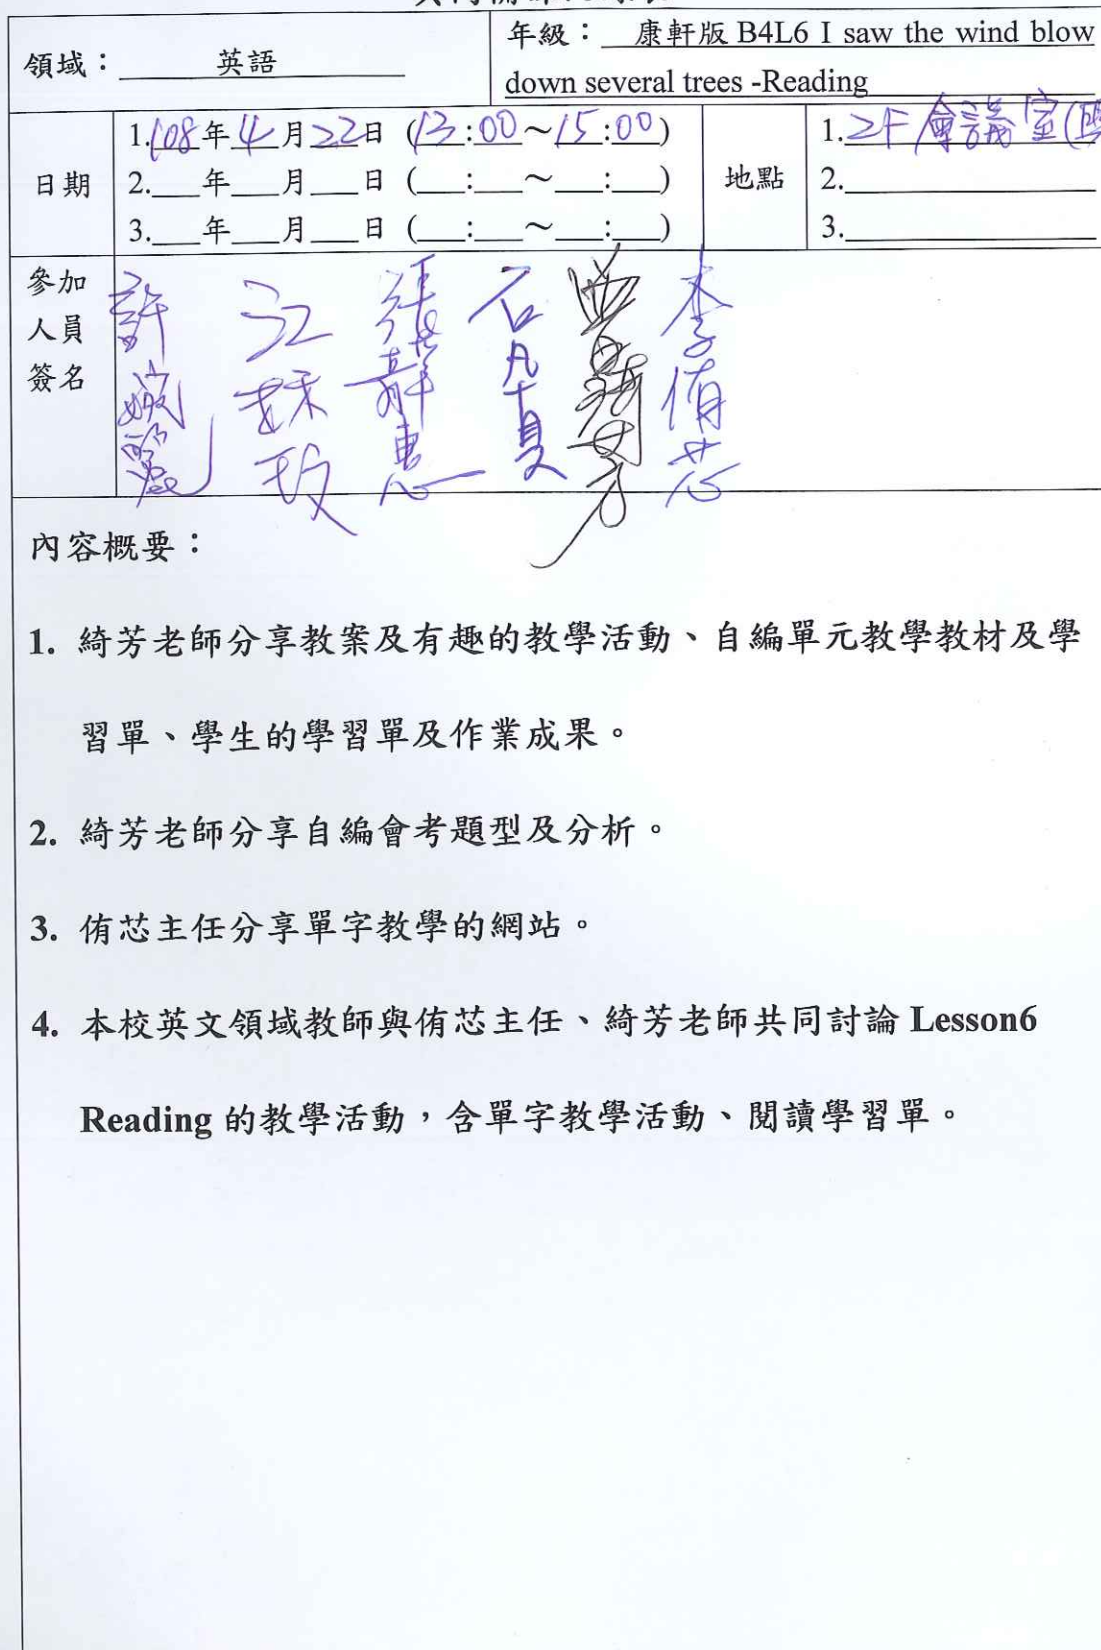 領域：英語
年級：康軒版 B4L6 I saw the wind blow
down several trees -Reading
日期
1.108年4月22日 (13:00～15:00)
2.___年___月___日 (___:___～___:___)
3.___年___月___日 (___:___～___:___)
地點
1.2F會議室(
2.
3.
參加
人員
簽名
許婉麗
江妹玫
張辭惠
石凡夏
曾綺芳
李侑芯
內容概要：
1. 綺芳老師分享教案及有趣的教學活動、自編單元教學教材及學
習單、學生的學習單及作業成果。
2. 綺芳老師分享自編會考題型及分析。
3. 侑芯主任分享單字教學的網站。
4. 本校英文領域教師與侑芯主任、綺芳老師共同討論 Lesson6
Reading 的教學活動，含單字教學活動、閱讀學習單。